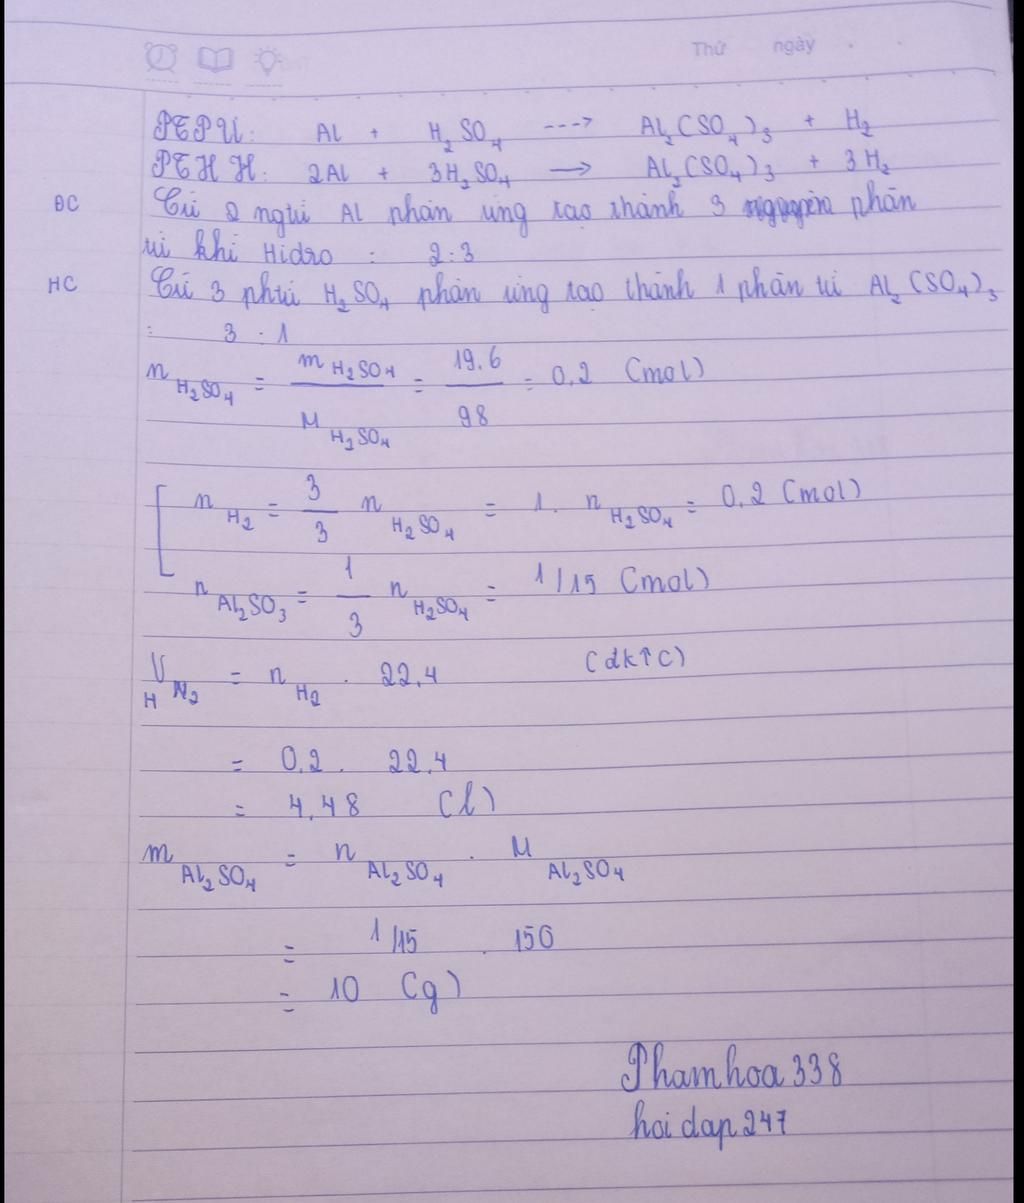 Thứ ngày
PTPU: Al + H₂SO₄ ---> Al₂(SO₄)₃ + H₂
PTHH: 2Al + 3H₂SO₄ → Al₂(SO₄)₃ + 3H₂
ĐC Cứ 2 ngtử Al phản ứng tạo thành 3 phân
tử khí Hidro : 2:3
HC Cứ 3 phtử H₂SO₄ phản ứng tạo thành 1 phân tử Al₂(SO₄)₃
: 3 : 1
n H₂SO₄ = m H₂SO₄ / M H₂SO₄ = 19.6 / 98 = 0,2 (mol)
n H₂ = 3/3 n H₂SO₄ = 1. n H₂SO₄ = 0,2 (mol)
n Al₂SO₃ = 1/3 n H₂SO₄ = 1/15 (mol)
V H₂ = n H₂ . 22,4 (đktc)
= 0,2 . 22,4
= 4,48 (l)
m Al₂SO₄ = n Al₂SO₄ . M Al₂SO₄
= 1/15 . 150
= 10 (g)
Phamhoa338
hoidap247